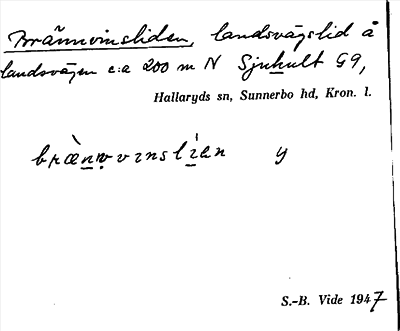 Brännvinsliden, landsvägslid å
landsvägen c:a 200 m N Sjuhult G9,
Hallaryds sn, Sunnerbo hd, Kron. l.
y
S.-B. Vide 1947